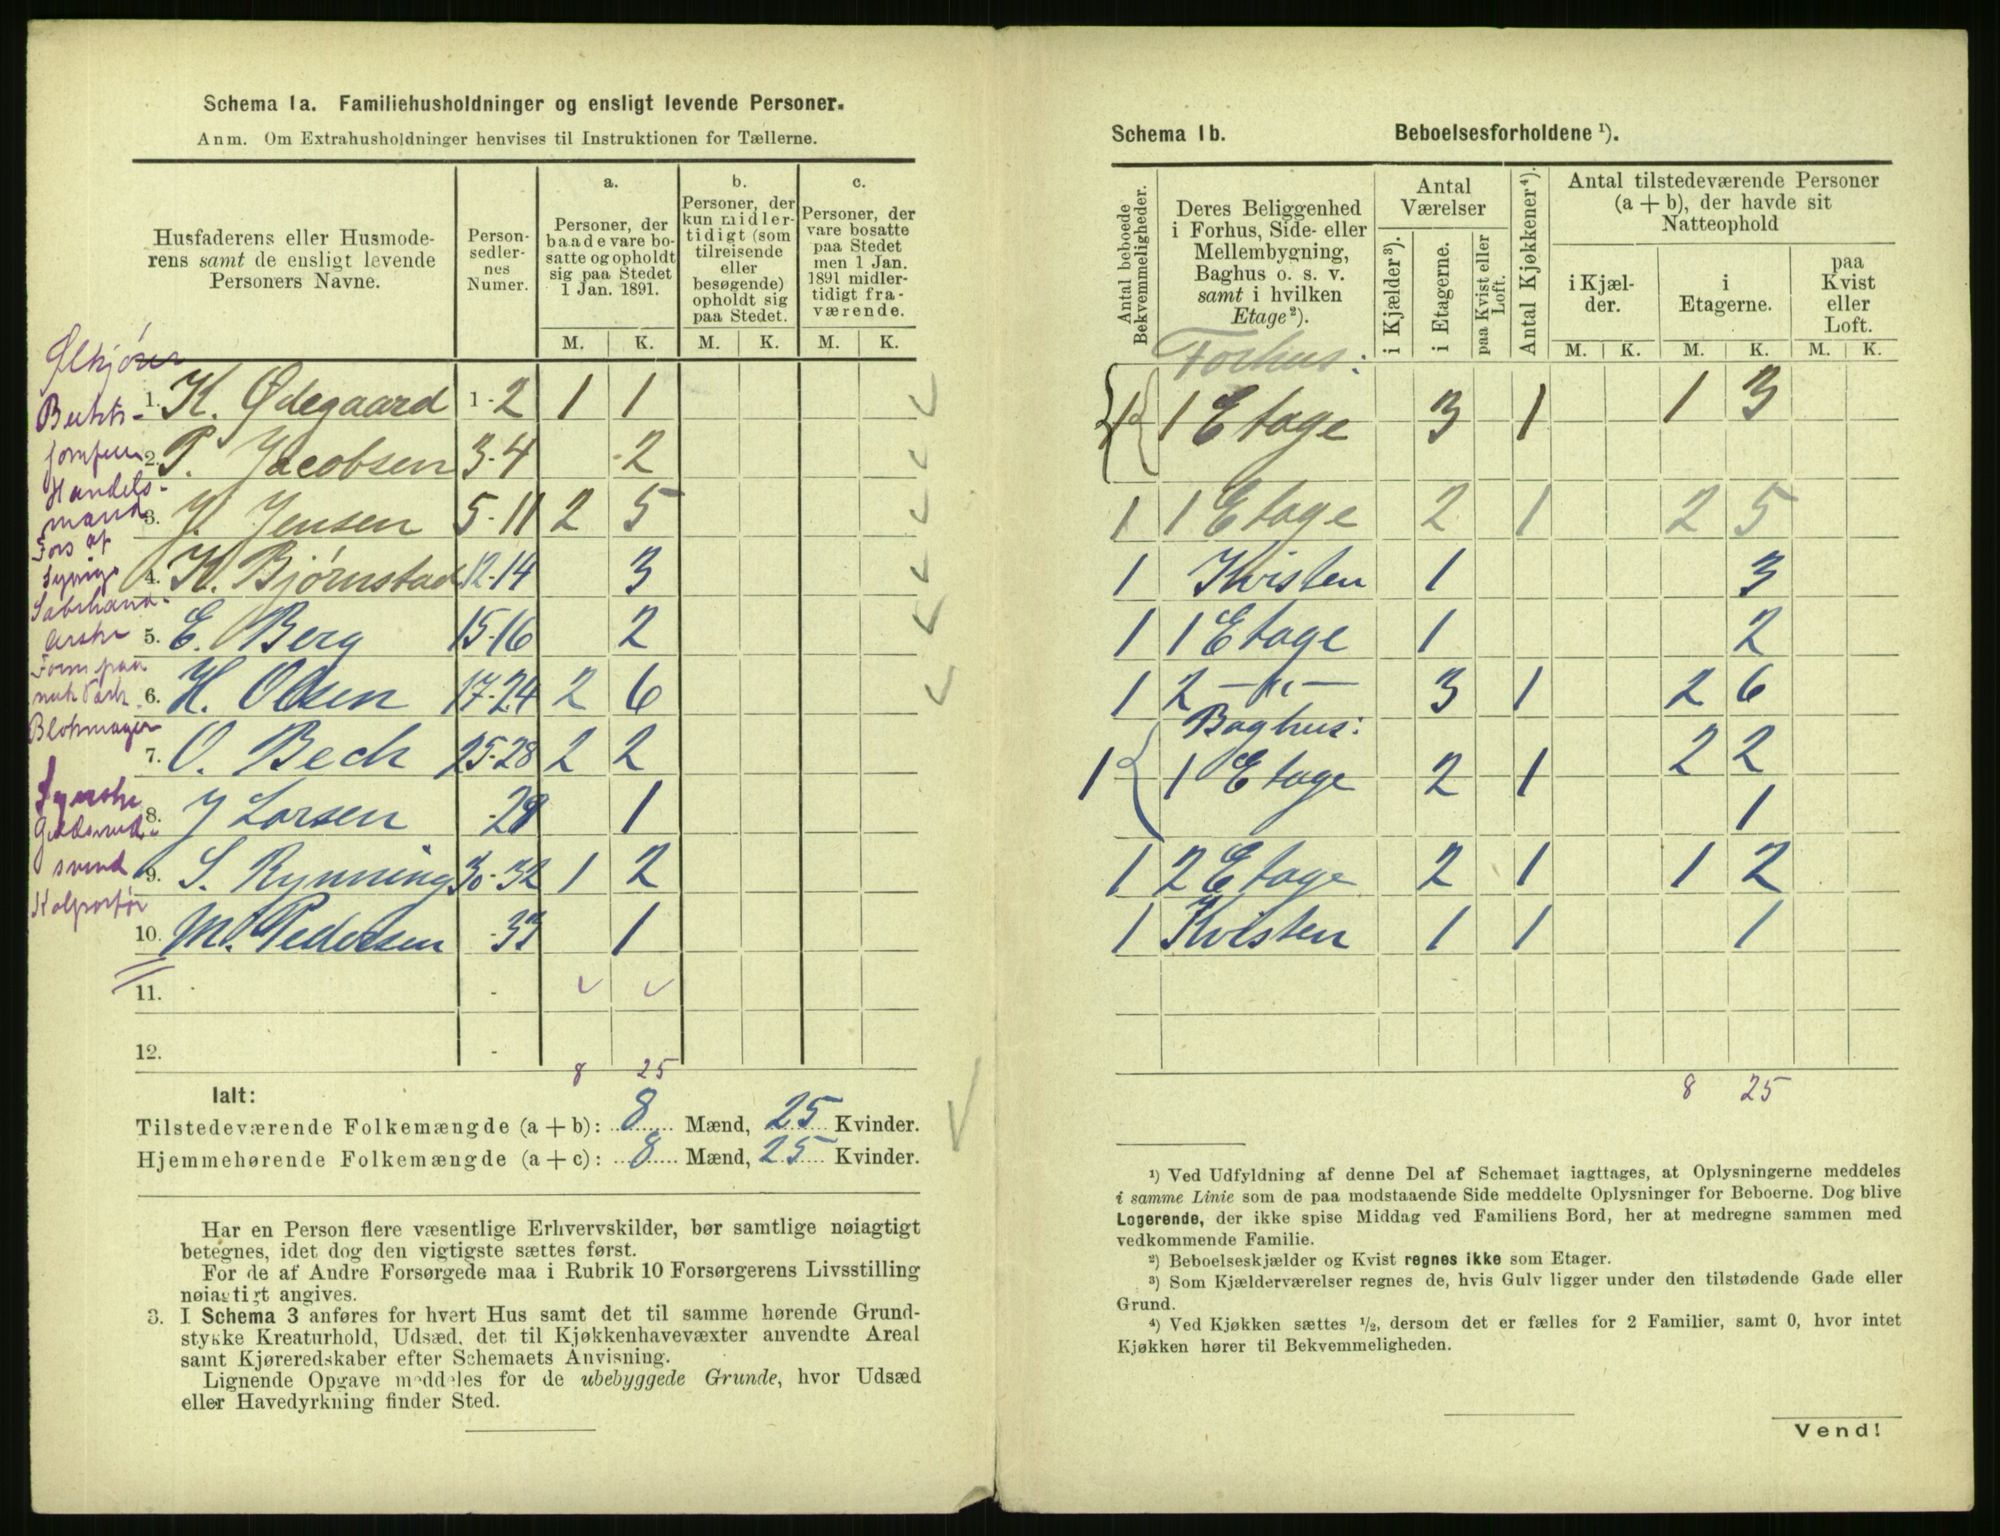 Schema 1a. Familiehusholdninger og ensligt levende Personer.
Anm. Om Extrahusholdninger henvises til Instruktionen for Tællerne.
Husfaderens eller Husmode-
rens samt de ensligt levende
Personers Navne.
Person-
sedler-
nes
Numer.
a.
Personer, der
baade vare bo-
satte og opholdt
sig paa Stedet
1 Jan. 1891.
b.
Personer, der
kun midler-
tidigt (som
tilreisende
eller
besøgende)
opholdt sig
paa Stedet.
c.
Personer, der
vare bosatte
paa Stedet
men 1 Jan.
1891 midler-
tidigt fra-
værende.
M. K. M. K. M. K.
1. K. Ødegaard 1-2 1 1
2. P. Jacobsen 3-4 2
Handels-
mand
3. J. Jensen 5-11 2 5
Fors af
4. K. Bjørnstad 12-14 3
5. E. Berg 15-16 2
6. H. Olsen 17-24 2 6
Blokmager
7. O. Bech 25-28 2 2
Syerske
8. J Larsen -29 1
svend
9. S. Rynning 30-32 1 2
Kolportør
10. M. Pedersen -33 1
11. -
12. -
8 25
Ialt:
Tilstedeværende Folkemængde (a + b): 8 Mænd, 25 Kvinder.
Hjemmehørende Folkemængde (a + c): 8 Mænd, 25 Kvinder.
Har en Person flere væsentlige Erhvervskilder, bør samtlige nøiagtigt
betegnes, idet dog den vigtigste sættes først.
For de af Andre Forsørgede maa i Rubrik 10 Forsørgerens Livsstilling
nøiagtigt angives.
3. I Schema 3 anføres for hvert Hus samt det til samme hørende Grund-
stykke Kreaturhold, Udsæd, det til Kjøkkenhavevæxter anvendte Areal
samt Kjøreredskaber efter Schemaets Anvisning.
Lignende Opgave meddeles for de ubebyggede Grunde, hvor Udsæd
eller Havedyrkning finder Sted.
Schema 1b. Beboelsesforholdene ¹).
Antal beboede
Bekvemmeligheder.
Deres Beliggenhed
i Forhus, Side- eller
Mellembygning,
Baghus o. s. v.
samt i hvilken
Etage ²).
Antal
Værelser
i Kjælder ³).
i Etagerne.
paa Kvist eller
Loft.
Antal Kjøkkener ⁴).
Antal tilstedeværende Personer
(a + b), der havde sit
Natteophold
i Kjæl-
der.
i
Etagerne.
paa
Kvist
eller
Loft.
M. K. M. K. M. K.
Forhus:
1 1 Etage 3 1 1 3
1 1 Etage 2 1 2 5
1 Kvisten 1 3
1 1 Etage 1 2
1 2 -"- 3 1 2 6
Baghus:
1 1 Etage 2 1 2 2
1
1 2 Etage 2 1 1 2
1 Kvisten 1 1 1
8 25
¹) Ved Udfyldning af denne Del af Schemaet iagttages, at Oplysningerne meddeles
i samme Linie som de paa modstaaende Side meddelte Oplysninger for Beboerne. Dog blive
Logerende, der ikke spise Middag ved Familiens Bord, her at medregne sammen med
vedkommende Familie.
²) Beboelseskjælder og Kvist regnes ikke som Etager.
³) Som Kjælderværelser regnes de, hvis Gulv ligger under den tilstødende Gade eller
Grund.
⁴) Ved Kjøkken sættes ½, dersom det er fælles for 2 Familier, samt 0, hvor intet
Kjøkken hører til Bekvemmeligheden.
Vend!